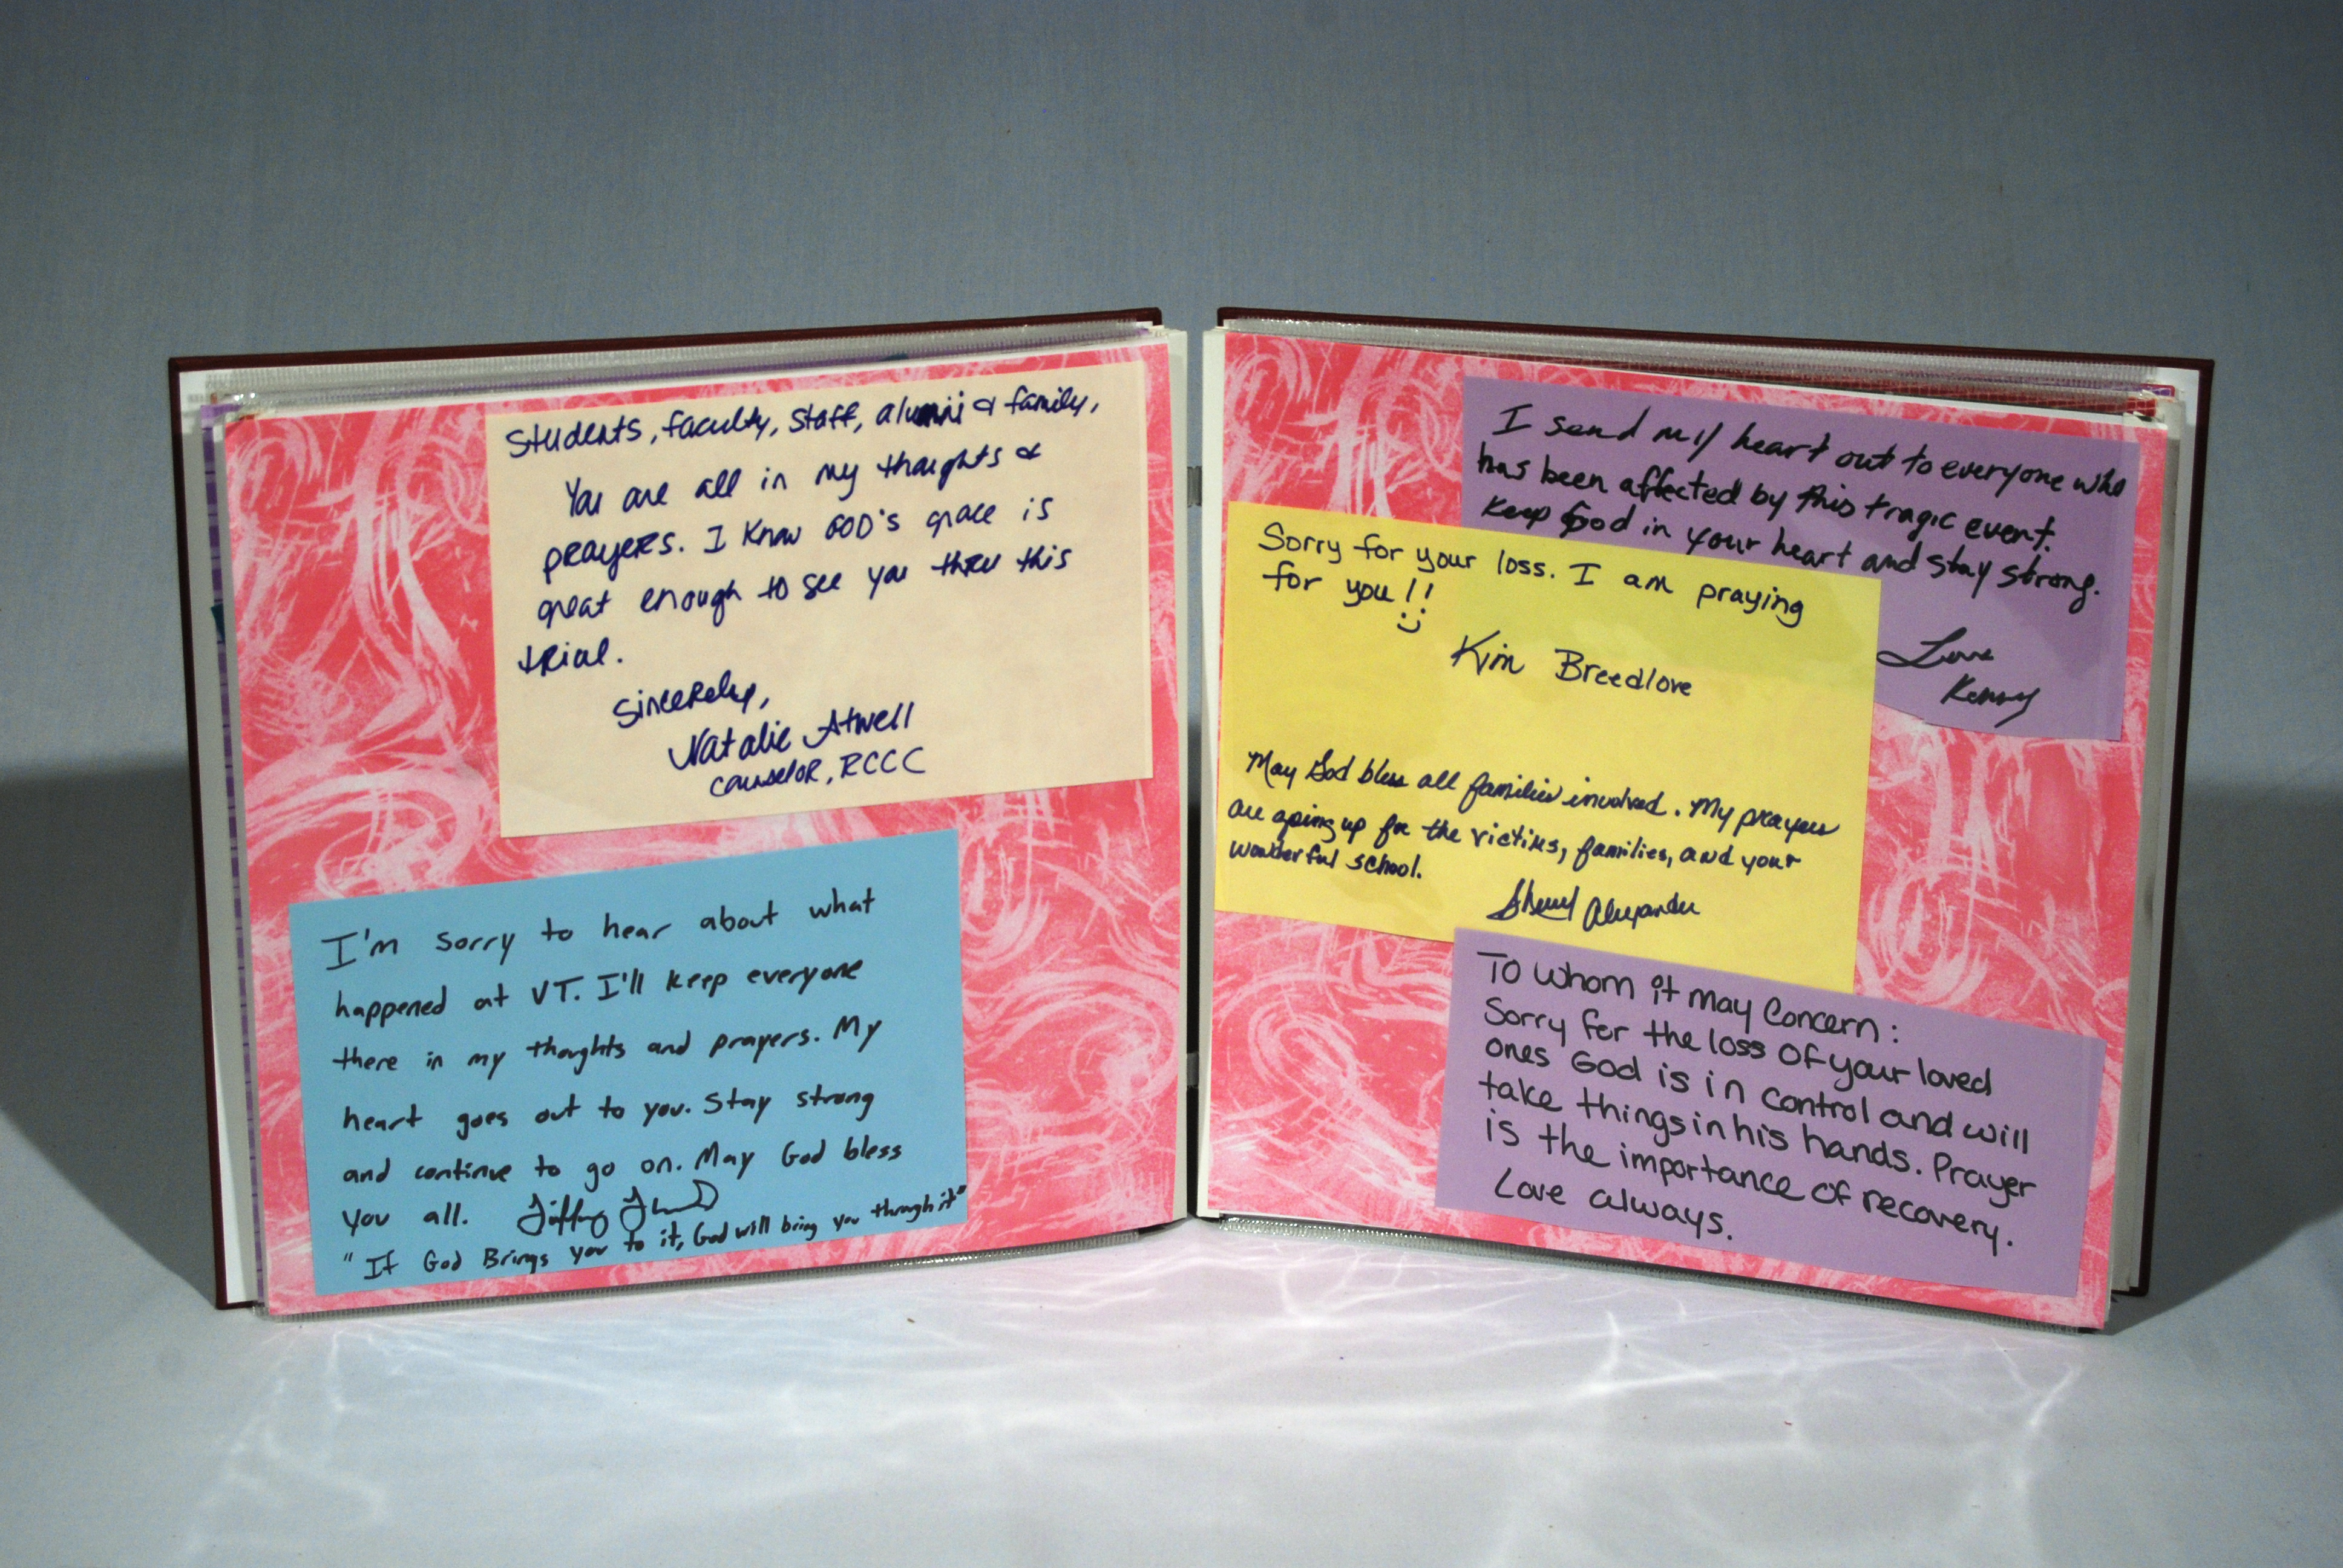 Students, faculty, staff, alumni & family,
You are all in my thoughts &
prayers. I know GOD's grace is
great enough to see you thru this
trial.
Sincerely,
Natalie Atwell
Counselor, RCCC
I'm sorry to hear about what
happened at VT. I'll keep everyone
there in my thoughts and prayers. My
heart goes out to you. Stay strong
and continue to go on. May God bless
you all. Tiffany
"If God Brings you to it, God will bring you through it"
I send my heart out to everyone who
has been affected by this tragic event.
Keep God in your heart and stay strong.
Love
Kenny
Sorry for your loss. I am praying
for you!! :)
Kim Breedlove
May God bless all families involved. My prayers
are going up for the victims, families, and your
wonderful school.
Sheryl Alexander
To Whom it may Concern:
Sorry for the loss of your loved
ones God is in control and will
take things in his hands. Prayer
is the importance of recovery.
Love always.